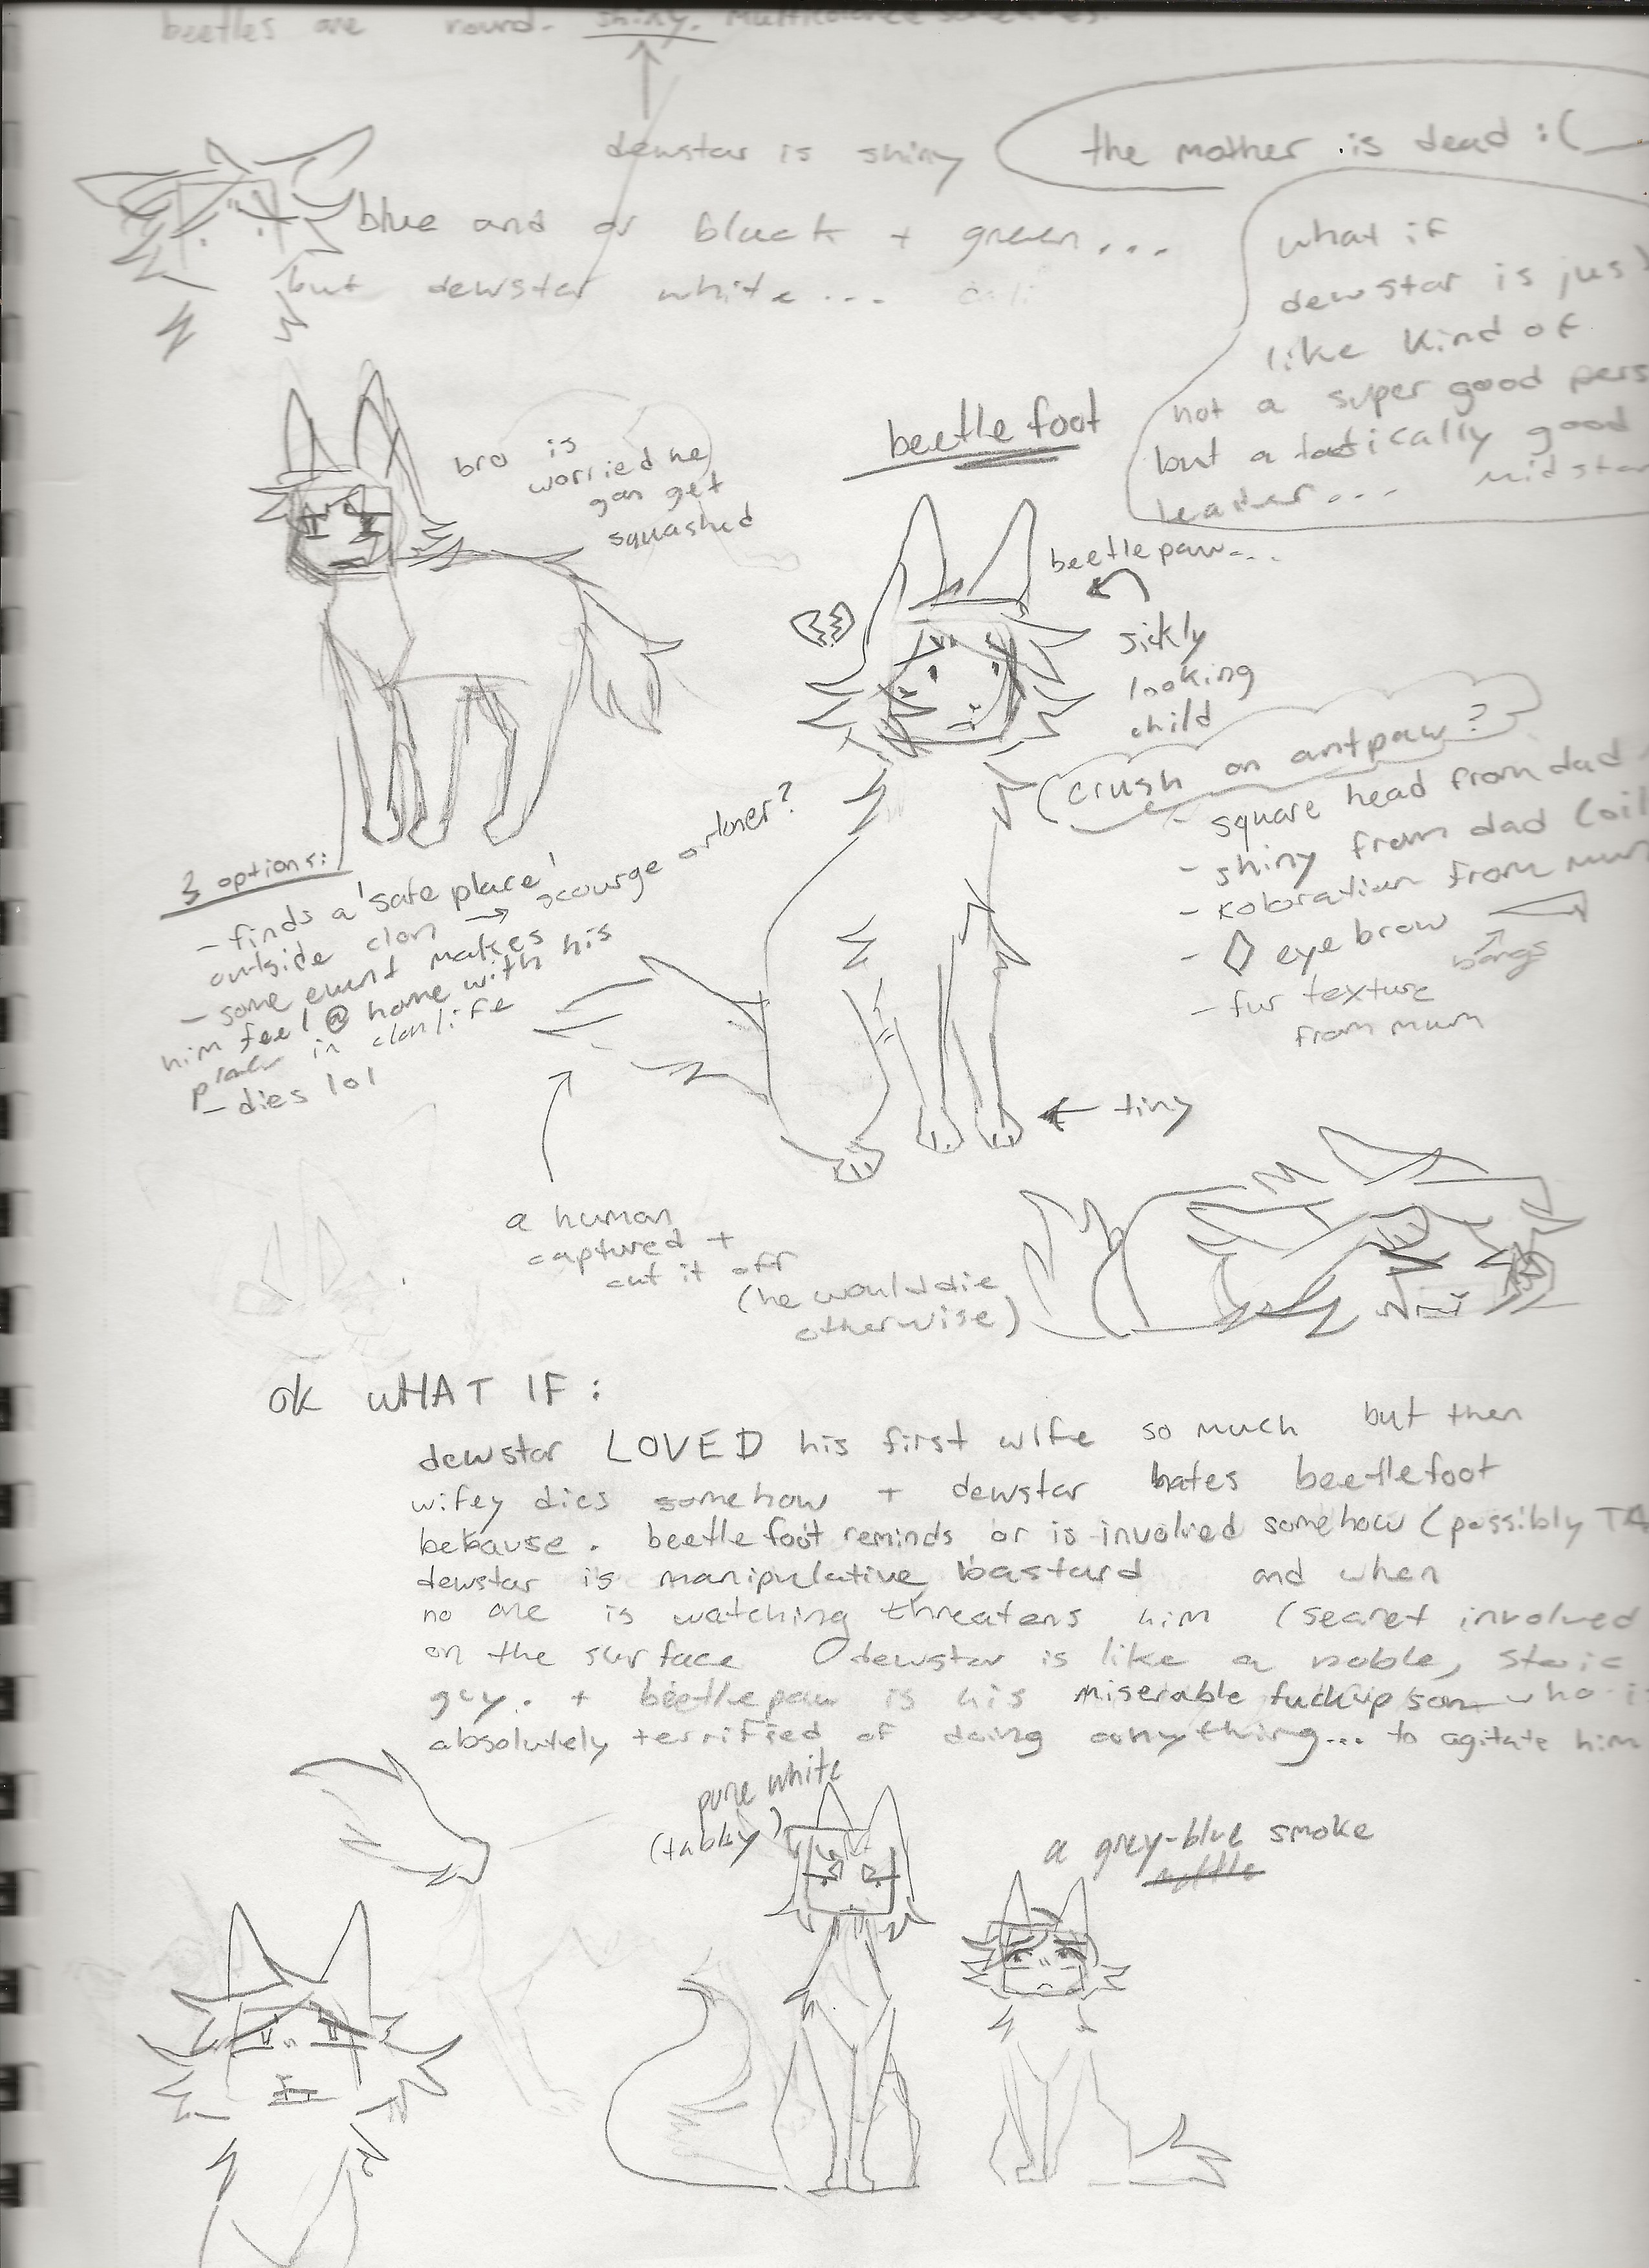 beetles are round. shiny. multicolored sometimes.
dewstar is shiny
the mother is dead :(
blue and or black + green...
but dewstar white...
what if
dewstar is jus
like kind of
not a super good pers
but a tactically good
leader... mid star
bro is
worried he
gon get
squashed
beetlefoot
beetlepaw...
sickly
looking
child
crush on antpaw?
- square head from dad
- shiny from dad (oil
- koloration from mum
- eyebrow
bangs
- fur texture
from mum
3 options:
- finds a 'safe place'
outside clan → scourge or loner?
- some event makes
him feel @ home with his
place in clan life
- dies lol
← tiny
a human
captured +
cut it off
(he would die
otherwise)
ok WHAT IF:
dewstar LOVED his first wife so much but then
wifey dies somehow + dewstar hates beetlefoot
bekause. beetlefoot reminds or is involved somehow (possibly TA
dewstar is manipulative bastard and when
no one is watching threatens him (secret involved
on the surface dewstar is like a noble, stoic
guy. + beetlepaw is his miserable fuckup son who i
absolutely terrified of doing anything... to agitate him
pure white
(tabby)
a grey-blue smoke